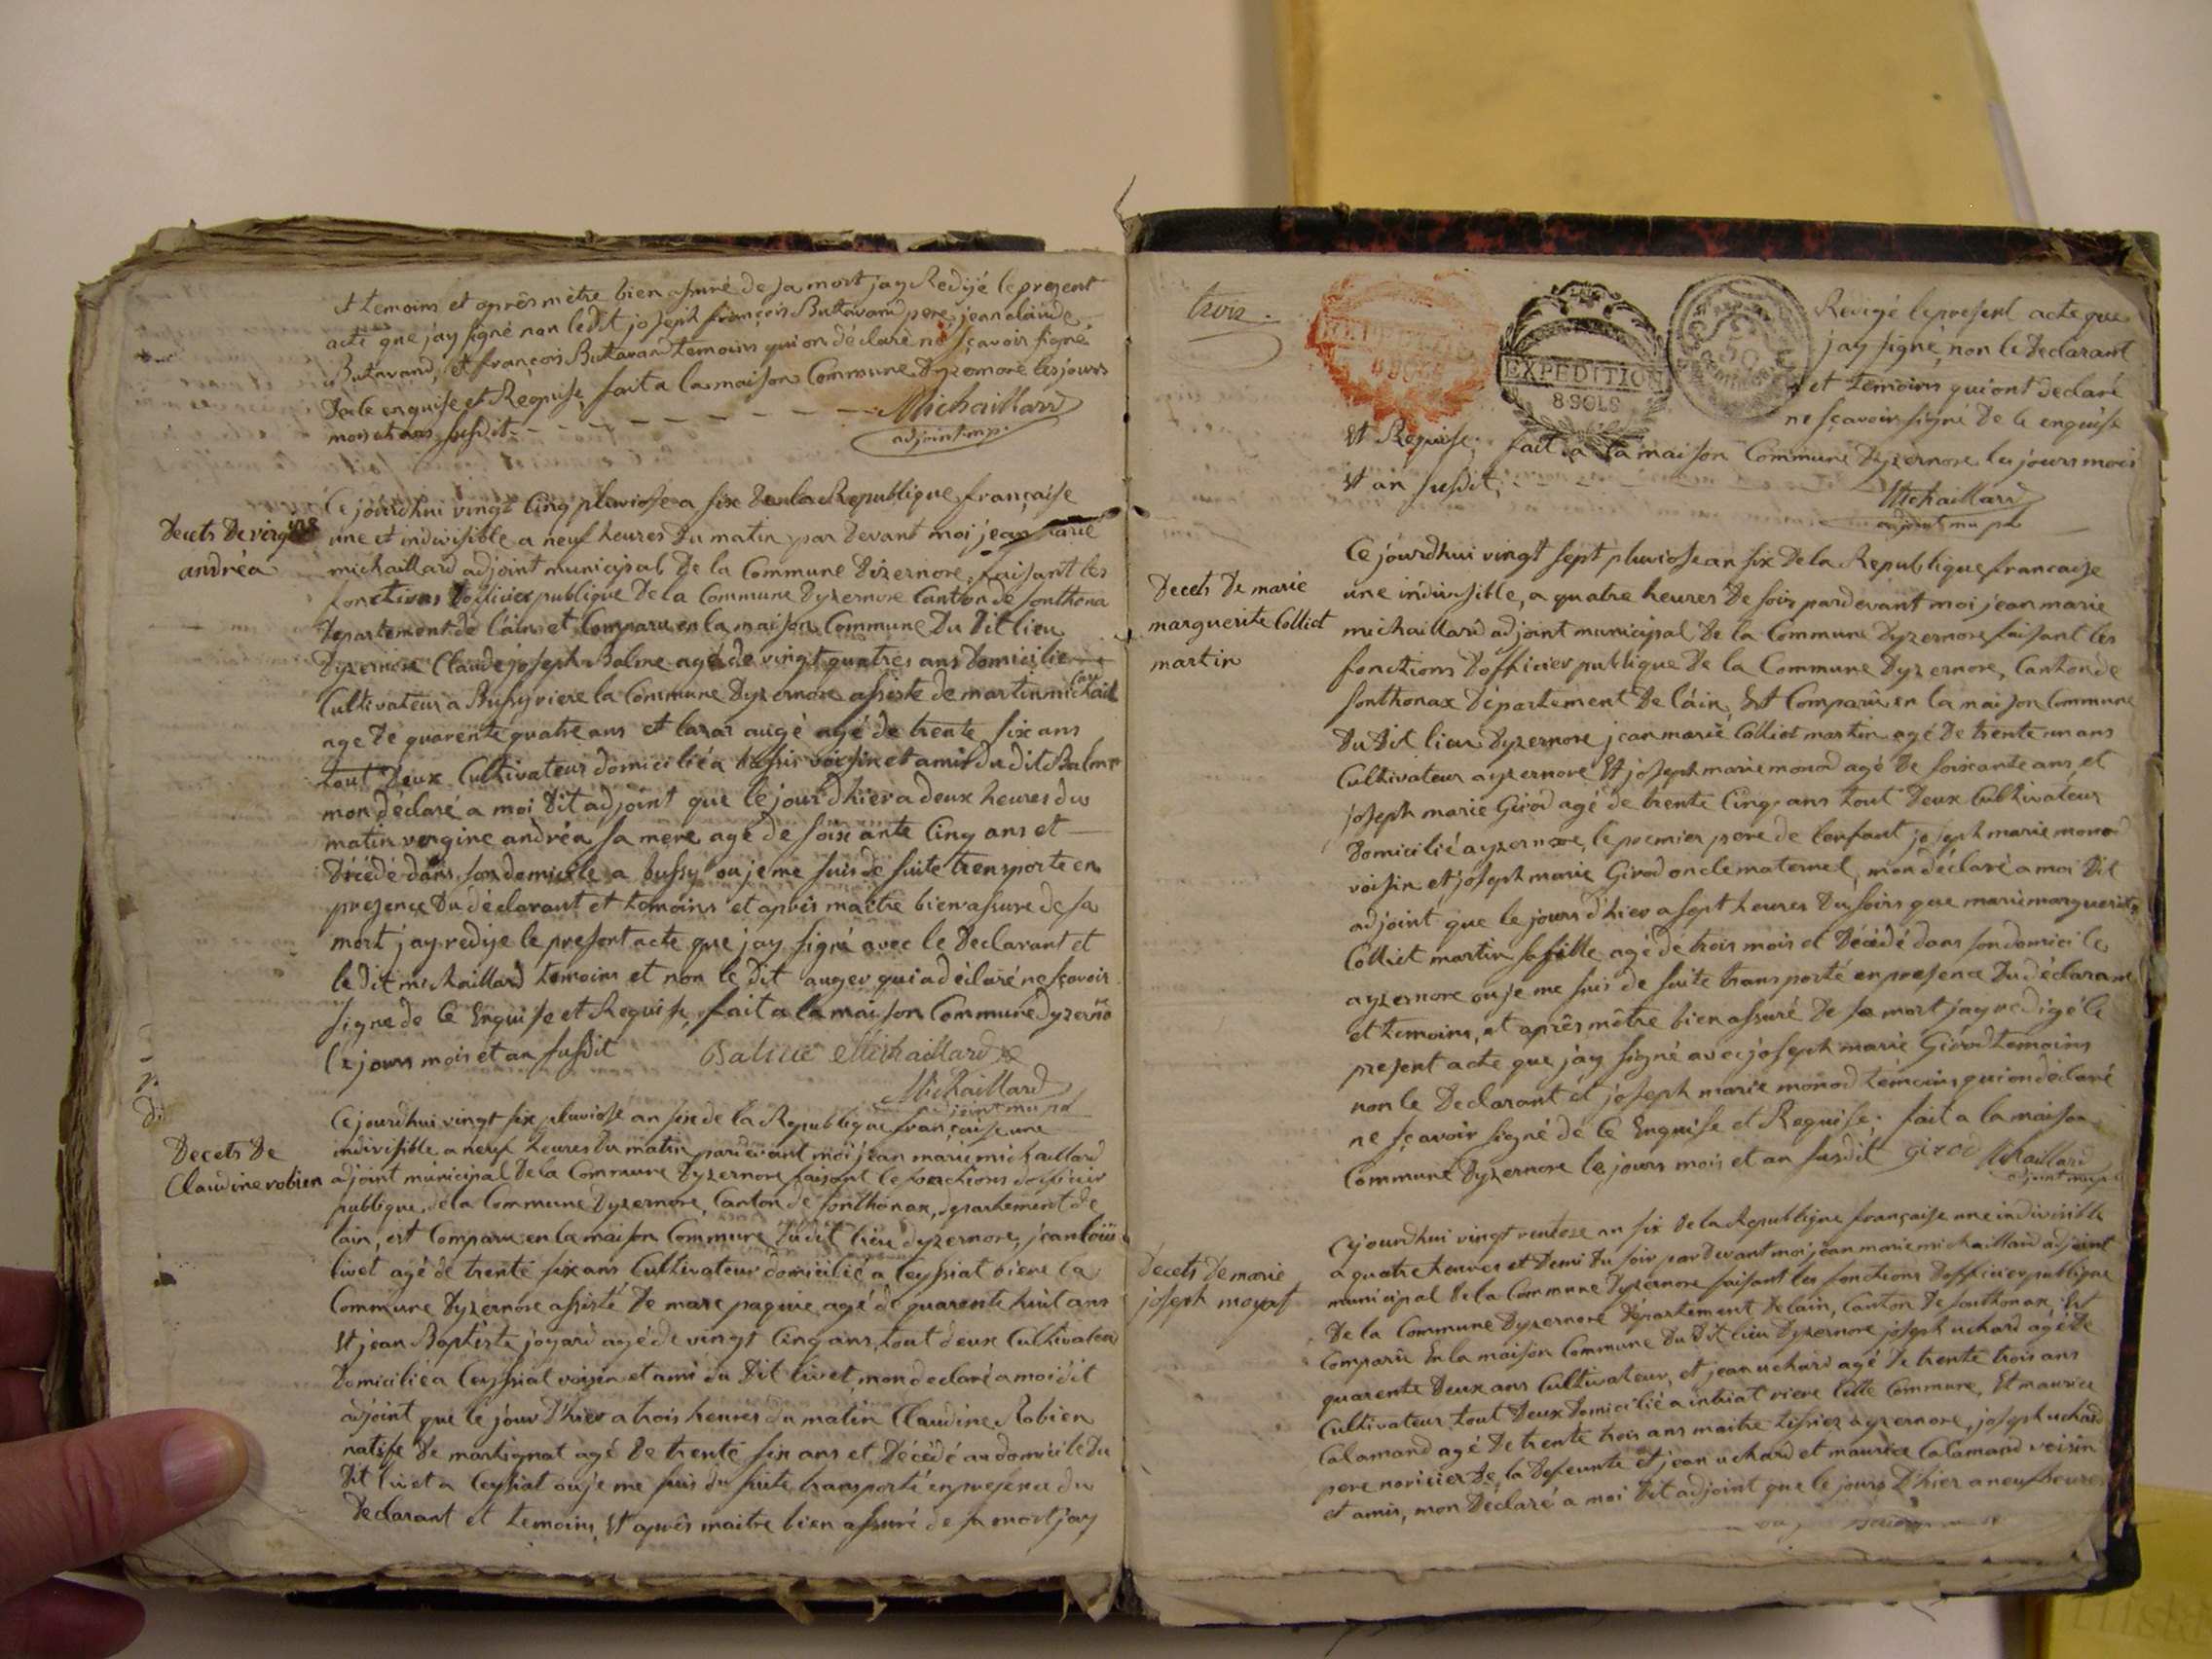 t temoins et aprês mètre bien assuré de sa mort jay Redijé le present
acte que jay signé non ledit joseph françois Butavand pere, jean claude
Butavand, et françois Butavand temoins qui on déclaré ne sçavoir signé
de le enquise et Requise, fait a la maison Commune Dyzernore les jours
mois et ans susdit
Michaillard
adjoint mp.
Decets De virgine
andréa
Ce jourdhui vingt Cinq pluviose a six De la Republique française
une et indivisible a neuf heures Du matin par Devant moi jean marie
michaillard adjoint municipal De la Commune Dizernore, faisant les
fonctions Dofficier publique De la Commune Dyzernore Canton de sonthona
Departement de láin et Comparu en la maison Commune Du Dit lieu
Dyzernore Claude joseph Balme agé de vingt quatres ans Domicilie
Cultivateur a Bussy viere la Commune Dyzernore assiste de martin michail
age De quarente quatre ans et lazar augé agé de trente six ans
tout Deux Cultivateur domicilié a bussis voisin et amis du dit Balme
mon déclaré a moi Dit adjoint que le jour dhier a deux heures du
matin vergine andréa sa mere agé de soixante Cinq ans et
Décédé dans son domicile a bussy ou je me suis de suite transporte en
presence Du déclarant et temoins et aprés maitre bien assure de sa
mort jay redije le present acte que jay signé avec le Declarant et
le dit michaillard temoins et non le Dit auger qui a déclaré ne scavoir
signe de Ce Enquise et Requise, fait a la maison Commune Dyzerno
le jours mois et an susdit Balme Michaillard
Michaillard
adjoint mu pal
Decets De
Claudine robien
Ce jourdhui vingt six pluviose an six de la Republique française une
indivisible a neuf heures Du matin pardevant moi jean marie michaillard
adjoint municipal De la Commune Dyzernore faisant le fonctions dofficier
publique de la Commune Dyzernore, Canton de sonthonax, departement de
lain, est Comparu en la maison Commune Du dit lieu dyzernore, jean louis
livet agé de trente six ans Cultivateur domicilié a Ceyssiat viere la
Commune Dyzernore assisté De marc paquie agé de quarente huit ans
Et jean Baptiste joyard agé de vingt Cinq ans, tout deux Cultivateu
Domicilié a Ceyssiat voisin et ami du Dit livet, mon declaré a moi dit
adjoint que le jour D'hier a trois heures du matin Claudine Robien
natife De martignat agé De trente six ans et Décédé au domicile Du
Dit livet a Ceyssiat ou je me suis du suite transporté en presence du
Declarant et temoins, Et aprês maitre bien assuré de sa mort jay
trois.
EXPEDITION
8 SOLS
Redigé le present acte que
jay signé, non le Declarant
et temoins qui ont declaré
ne sçavoir signé De le enquise
Et Requise; fait a la maison Commune Dyzernore les jours mois
et an susdit,
Michaillard
adjoint mu pal
Decets De marie
marguerite Colliet
martin
Ce jourdhui vingt sept pluviose an six De la Republique francaise
une indivisible, a quatre heures De soir pardevant moi jean marie
michaillard adjoint municipal De la Commune Dyzernore faisant les
fonctions Dofficier publique De la Commune Dyzernore, Canton de
Sonthonax Département De láin, Est Comparu en la maison Commune
Du Dit lieu Dyzernore jean marie Colliet martin agé De trente un ans
Cultivateur ayzernore Et joseph marie monod agé De soixante ans, et
joseph marie Girod agé de trente Cinq ans tout Deux Cultivateur
Domicilié ayzernore, le premier pere de lenfant joseph marie monod
voisin et joseph marie Girod oncle maternel, mon déclaré a moi Dit
adjoint que le jours d'hier a sept heures Du soirs que marie marguerite
Colliet martin sa fille agé de trois mois et Décédé dans son domicile
ayzernore ou je me suis de suite transporté en presence Du déclarant
et temoins, et aprês mêtre bien assuré De sa mort jay redigé le
present acte que jay signé avec joseph marie Girod temoins
non le Declarant et joseph marie monod temoins qui on déclaré
ne sçavoir signé de Ce Enquise et Requise; fait a la maison
Commune Dyzernore le jours mois et an susdit girod Michaillard
adjoint mu pal
Decets De marie
joseph moyat
Cejourdhui vingt ventose an six De la Republique française une indivisible
a quatre heures et Demi Du soir par Devant moi jean marie michaillard adjoint
municipal De la Commune Dyzernore faisant les fonctions Dofficier publique
De la Commune Dyzernore Département De lain, Canton De sonthonax, Est
Comparu En la maison Commune Du Dit lieu Dyzernore joseph uchard agé De
quarente Deux ans Cultivateur, et jean uchard agé De trente trois ans
Cultivateur tout Deux Domicilié a intriat viere Cette Commune, Et maurice
Calamand agé De trente trois ans maitre tissiez ayzernore, joseph uchard
pere noricier De la Defeunte et jean uchard et maurice Calamand voisin
et amis, mon Déclaré a moi Dit adjoint que le jours D'hier a neuf heures